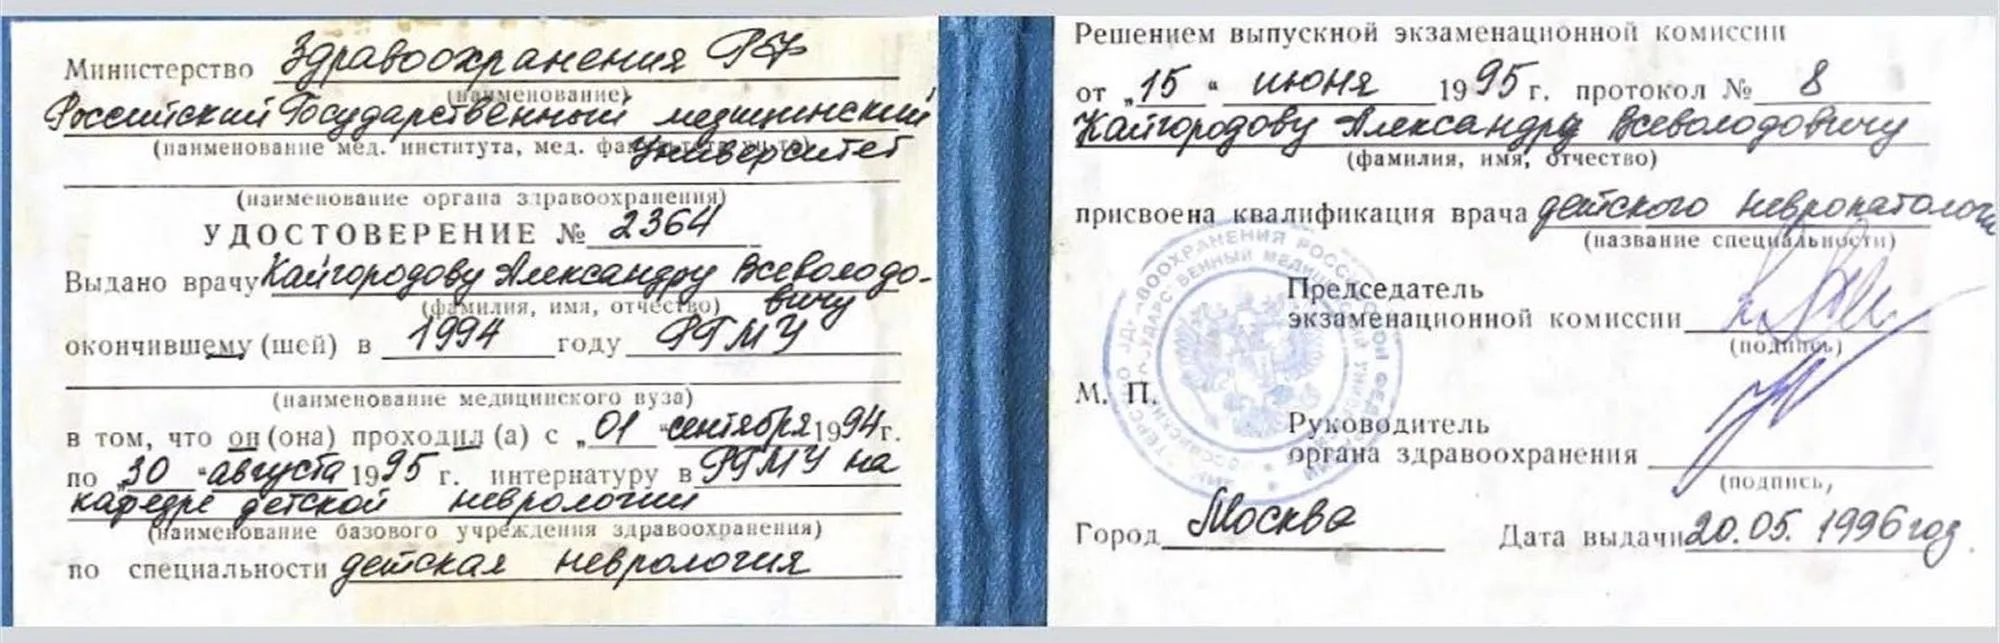 Министерство Здравоохранения РФ
(наименование)
Российский Государственный медицинский
(наименование мед. института, мед. университет
(наименование органа здравоохранения)
УДОСТОВЕРЕНИЕ № 2364
Выдано врачу Кайгородову Александру Всеволодо-
(фамилия, имя, отчество) вичу
окончившему (шей) в 1994 году РГМУ
(наименование медицинского вуза)
в том, что он (она) проходил (а) с „01" сентября 1994 г.
по „30" августа 1995 г. интернатуру в РГМУ на
кафедре детской неврологии
(наименование базового учреждения здравоохранения)
по специальности детская неврология
Решением выпускной экзаменационной комиссии
от „15" июня 1995 г. протокол № 8
Кайгородову Александру Всеволодовичу
(фамилия, имя, отчество)
присвоена квалификация врача детского невропатолога
(название специальности)
Председатель
экзаменационной комиссии
(подпись)
М. П.
Руководитель
органа здравоохранения
(подпись,
Город Москва Дата выдачи 20.05.1996 год